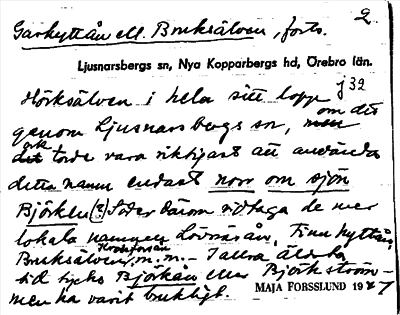 Garhyttån ell. Bruksälven, forts. 2
Ljusnarsbergs sn, Nya Kopparbergs hd, Örebro län.
j 39
Hörksälven i hela sitt lopp
genom Ljusnarsbergs sn, men om det
det ock torde vara riktigast att använda
detta namn endast norr om sjön
Björken (?). Söder därom vidtaga de mer
lokala namnen Lövnäsån, Finnhyttån,
Bruksälven, m.m. — I allra äldsta
tid tycks Björkån eller Björkström-
men ha varit brukligt.
MAJA FORSSLUND 1927